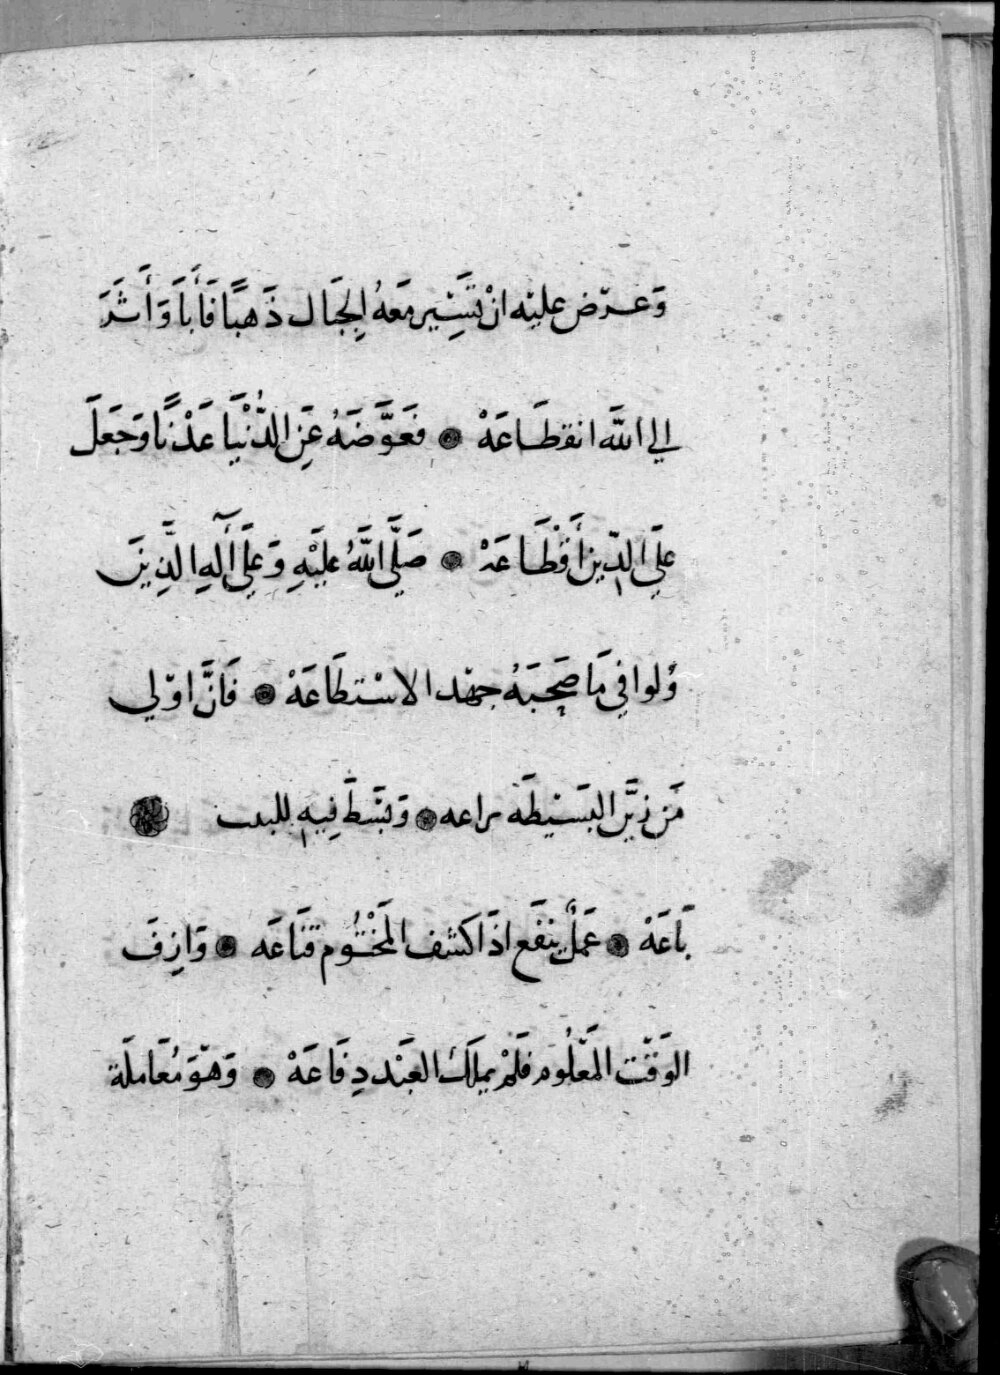 وَعَرّض عليْه انْ تَسِيْر مَعَهُ الِجبَال ذَهبًا فَأَبَا وَأَثَرَ
الي اللَّه انقطَاعَهْ ۞ فعَوَّضَهُ عَنِ الدُّنْيَا عَدْنًا وَجَعَلَ
عَلَي الدّين أَقْطَاعَهْ ۞ صَلَّي اللَّهُ عَلَيْهِ وَعَلَي أَلِهِ الَّذِينَ
وُلوا في مَا صَحِبَهُ جهْد الاسْتطَاعَهْ ۞ فَانَّ اوْلي
مَن زيَّن البَسيْطَه يراعه ۞ وَبَسَطَ فِيهِ لليد ۞
بَاعَهْ ۞ عَمَلٌ ينفَع اذَا كشف المَخْتُوم قنَاعَه ۞ وَازِفَ
الوَقْت المَعْلُوم فَلَمْ يملَك العَبْد دِفَاعَهْ ۞ وَهْوَ مُعَاملَة